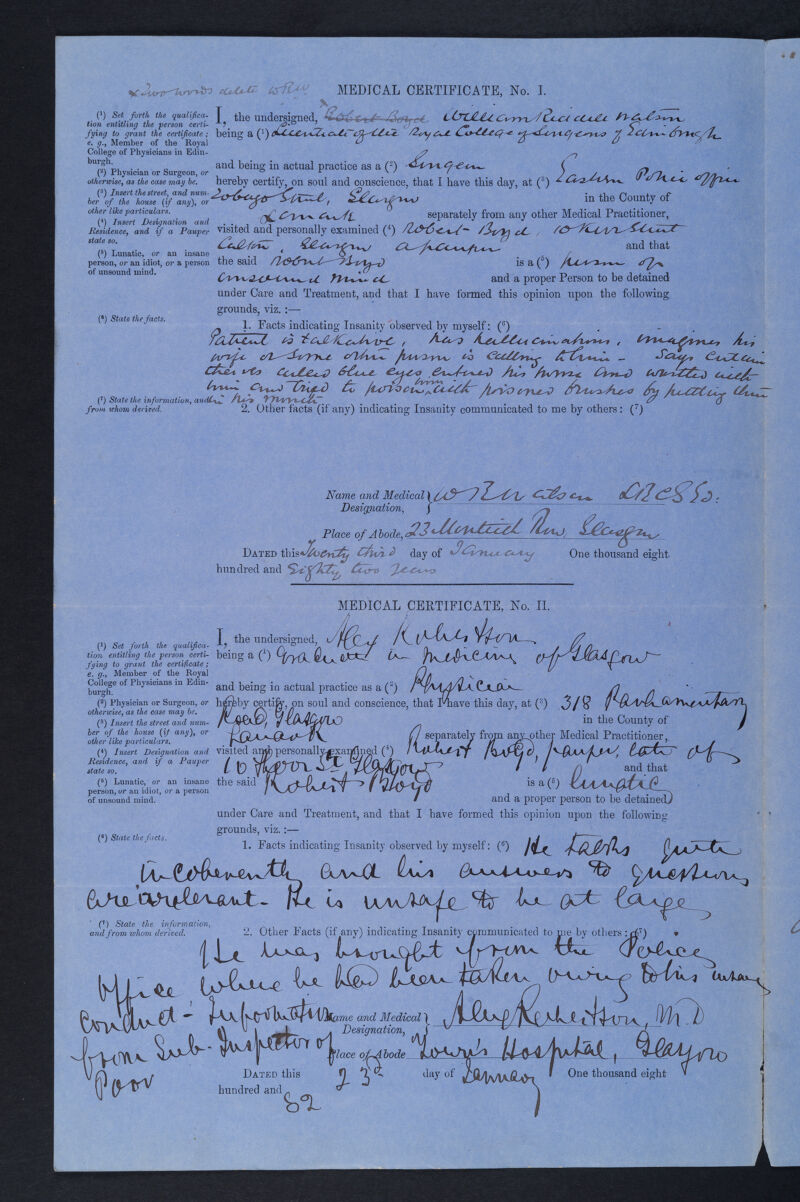 x Two words delete WRW
MEDICAL CERTIFICATE, No. I.
(¹) Set forth the qualifica-
tion entitling the person certi-
fying to grant the certificate;
e. g., Member of the Royal
College of Physicians in Edin-
burgh.
(²) Physician or Surgeon, or
otherwise, as the case may be.
(³) Insert the street, and num-
ber of the house (if any), or
other like particulars.
(⁴) Insert Designation and
Residence, and if a Pauper
state so.
(⁵) Lunatic, or an insane
person, or an idiot, or a person
of unsound mind.
(⁶) State the facts.
(⁷) State the information, and
from whom derived.
I, the undersigned, Robert Boyd William Riddell Watson
being a (¹) Licentiate of the Royal College of Surgeons of Edinburgh
and being in actual practice as a (²) Surgeon
hereby certify, on soul and conscience, that I have this day, at (³) Eastern Police Office
Tobago Street, Glasgow in the County of
Lanark separately from any other Medical Practitioner,
visited and personally examined (⁴) Robert Boyd, 10 Kerr Street
Calton, Glasgow a pauper and that
the said Robert Boyd is a (⁵) person of
unsound mind and a proper Person to be detained
under Care and Treatment, and that I have formed this opinion upon the following
grounds, viz. :—
1. Facts indicating Insanity observed by myself: (⁶)
Patient is talkative, has hallucinations, imagines his
wife or some other person is calling to him - Says certain
thieves called blue eyes entered his house and wrestled with
him and tried to poison him with poisoned brushes by putting them
in his mouth
2. Other facts (if any) indicating Insanity communicated to me by others: (⁷)
Name and Medical Designation, W R Watson LRCSEd:
Place of Abode, 23 Monteith Row, Glasgow
DATED this Twenty third day of January One thousand eight
hundred and Eighty two years
MEDICAL CERTIFICATE, No. II.
(¹) Set forth the qualifica-
tion entitling the person certi-
fying to grant the certificate;
e. g., Member of the Royal
College of Physicians in Edin-
burgh.
(²) Physician or Surgeon, or
otherwise, as the case may be.
(³) Insert the street and num-
ber of the house (if any), or
other like particulars.
(⁴) Insert Designation and
Residence, and if a Pauper
state so.
(⁵) Lunatic, or an insane
person, or an idiot, or a person
of unsound mind.
(⁶) State the facts.
(⁷) State the information,
and from whom derived.
I, the undersigned, Alex Robertson
being a (¹) Graduate in Medicine of Glasgow
and being in actual practice as a (²) Physician
hereby certify, on soul and conscience, that I have this day, at (³) 318 Parliamentary
Road, Glasgow in the County of
Lanark separately from any other Medical Practitioner,
visited and personally examined (⁴) Robert Boyd, pauper, late of
10 St Glasgow and that
the said Robert Boyd is a (⁵) lunatic
and a proper person to be detained
under Care and Treatment, and that I have formed this opinion upon the following
grounds, viz. :—
1. Facts indicating Insanity observed by myself: (⁶) He talks quite
incoherently and his answers to questions
are irrelevant - He is unsafe to be at large
2. Other Facts (if any) indicating Insanity communicated to me by others: (⁷)
He was brought from the Police
Office where he had been taken owing to his insane
conduct - Information
from Sub-Inspector of
Poor
Name and Medical Designation, Alex Robertson, M.D
Place of Abode Town's Hospital, Glasgow
DATED this 23d day of January One thousand eight
hundred and 82